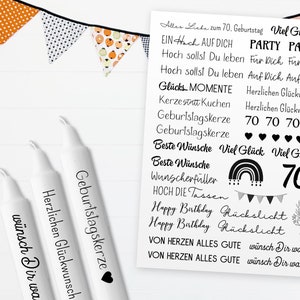 Alles Liebe zum 70. Geburtstag Viel Glück
EIN Hoch AUF DICH PARTY PA
Hoch sollst Du leben Für Dich Für D
Hoch sollst Du leben Auf Dich Auf D
Glücks MOMENTE Herzlichen Glückwunsch
Kerze statt Kuchen Herzlichen Glück
Geburtstagskerze 70 70 70
Geburtstagskerze
Beste Wünsche Viel Glück Viel Glü
Beste Wünsche 70
Wunscherfüller
HOCH DIE Tassen
Happy Birthday Glückslicht
Happy Birthday Glückslicht
VON HERZEN ALLES GUTE wünsch Dir was
VON HERZEN ALLES GUTE wünsch Dir
wünsch Dir wa
Herzlichen Glückwunsch
Geburtstagskerze